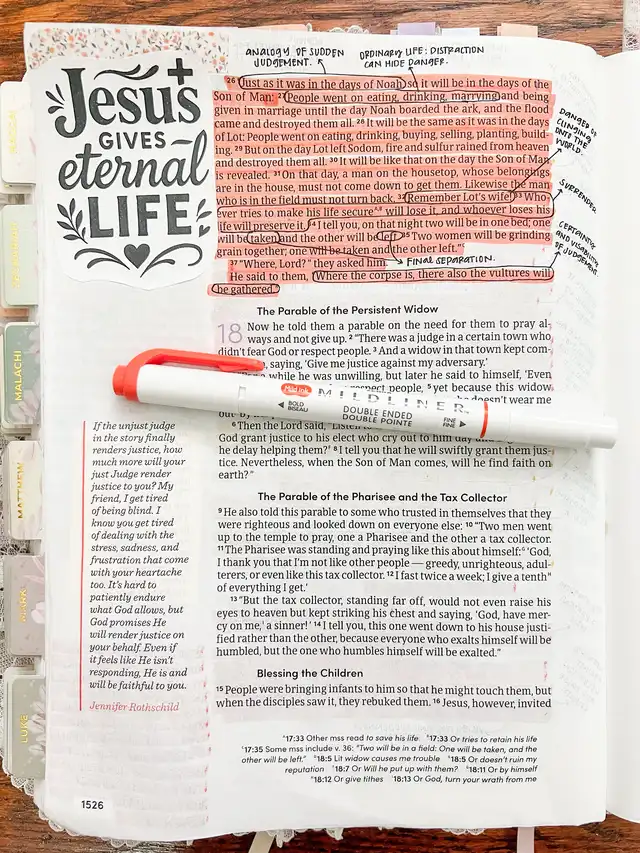 ANALOGY OF SUDDEN
JUDGEMENT.
ORDINARY LIFE: DISTRACTION
CAN HIDE DANGER.
Jesus
GIVES
eternal
LIFE
26 Just as it was in the days of Noah, so it will be in the days of the
Son of Man: 27 People went on eating, drinking, marrying and being
given in marriage until the day Noah boarded the ark, and the flood
came and destroyed them all. 28 It will be the same as it was in the days
of Lot: People went on eating, drinking, buying, selling, planting, build-
ing. 29 But on the day Lot left Sodom, fire and sulfur rained from heaven
and destroyed them all. 30 It will be like that on the day the Son of Man
is revealed. 31 On that day, a man on the housetop, whose belongings
are in the house, must not come down to get them. Likewise the man
who is in the field must not turn back. 32 Remember Lot's wife! 33 Who-
ever tries to make his life secure will lose it, and whoever loses his
life will preserve it. 34 I tell you, on that night two will be in one bed; one
will be taken and the other will be left. 35 Two women will be grinding
grain together; one will be taken and the other left."
37 "Where, Lord?" they asked him.
FINAL SEPARATION.
He said to them, "Where the corpse is, there also the vultures will
be gathered."
DANGER OF
CLINGING
ONTO THE
WORLD.
SURRENDER
CERTAINTY
AND VISIBILITY
OF JUDGEMENT.
The Parable of the Persistent Widow
18 Now he told them a parable on the need for them to pray al-
ways and not give up. 2 "There was a judge in a certain town who
didn't fear God or respect people. 3 And a widow in that town kept com-
saying, 'Give me justice against my adversary.'
while he was unwilling, but later he said to himself, 'Even
respect people, 5 yet because this widow
doesn't wear me
Mildliner
MILDLINER
BOLD
BISEAU
DOUBLE ENDED
DOUBLE POINTE
FINE
FINE
6 Then the Lord said, "Listen to
God grant justice to his elect who cry out to him day
he delay helping them? 8 I tell you that he will swiftly grant them jus-
tice. Nevertheless, when the Son of Man comes, will he find faith on
earth?"
The Parable of the Pharisee and the Tax Collector
9 He also told this parable to some who trusted in themselves that they
were righteous and looked down on everyone else: 10 "Two men went
up to the temple to pray, one a Pharisee and the other a tax collector.
11 The Pharisee was standing and praying like this about himself: 'God,
I thank you that I'm not like other people — greedy, unrighteous, adul-
terers, or even like this tax collector. 12 I fast twice a week; I give a tenth
of everything I get.'
13 "But the tax collector, standing far off, would not even raise his
eyes to heaven but kept striking his chest and saying, 'God, have mer-
cy on me, a sinner!' 14 I tell you, this one went down to his house justi-
fied rather than the other, because everyone who exalts himself will be
humbled, but the one who humbles himself will be exalted."
Blessing the Children
15 People were bringing infants to him so that he might touch them, but
when the disciples saw it, they rebuked them. 16 Jesus, however, invited
If the unjust judge
in the story finally
renders justice, how
much more will your
just Judge render
justice to you? My
friend, I get tired
of being blind. I
know you get tired
of dealing with the
stress, sadness, and
frustration that come
with your heartache
too. It's hard to
patiently endure
what God allows, but
God promises He
will render justice on
your behalf. Even if
it feels like He isn't
responding, He is and
will be faithful to you.
Jennifer Rothschild
17:33 Other mss read to save his life 17:33 Or tries to retain his life
17:35 Some mss include v. 36: "Two will be in a field: One will be taken, and the
other will be left." 18:5 Lit widow causes me trouble 18:5 Or doesn't ruin my
reputation 18:7 Or Will he put up with them? 18:11 Or by himself
18:12 Or give tithes 18:13 Or God, turn your wrath from me
1526
MALACHI
MATTHEW
MARK
LUKE